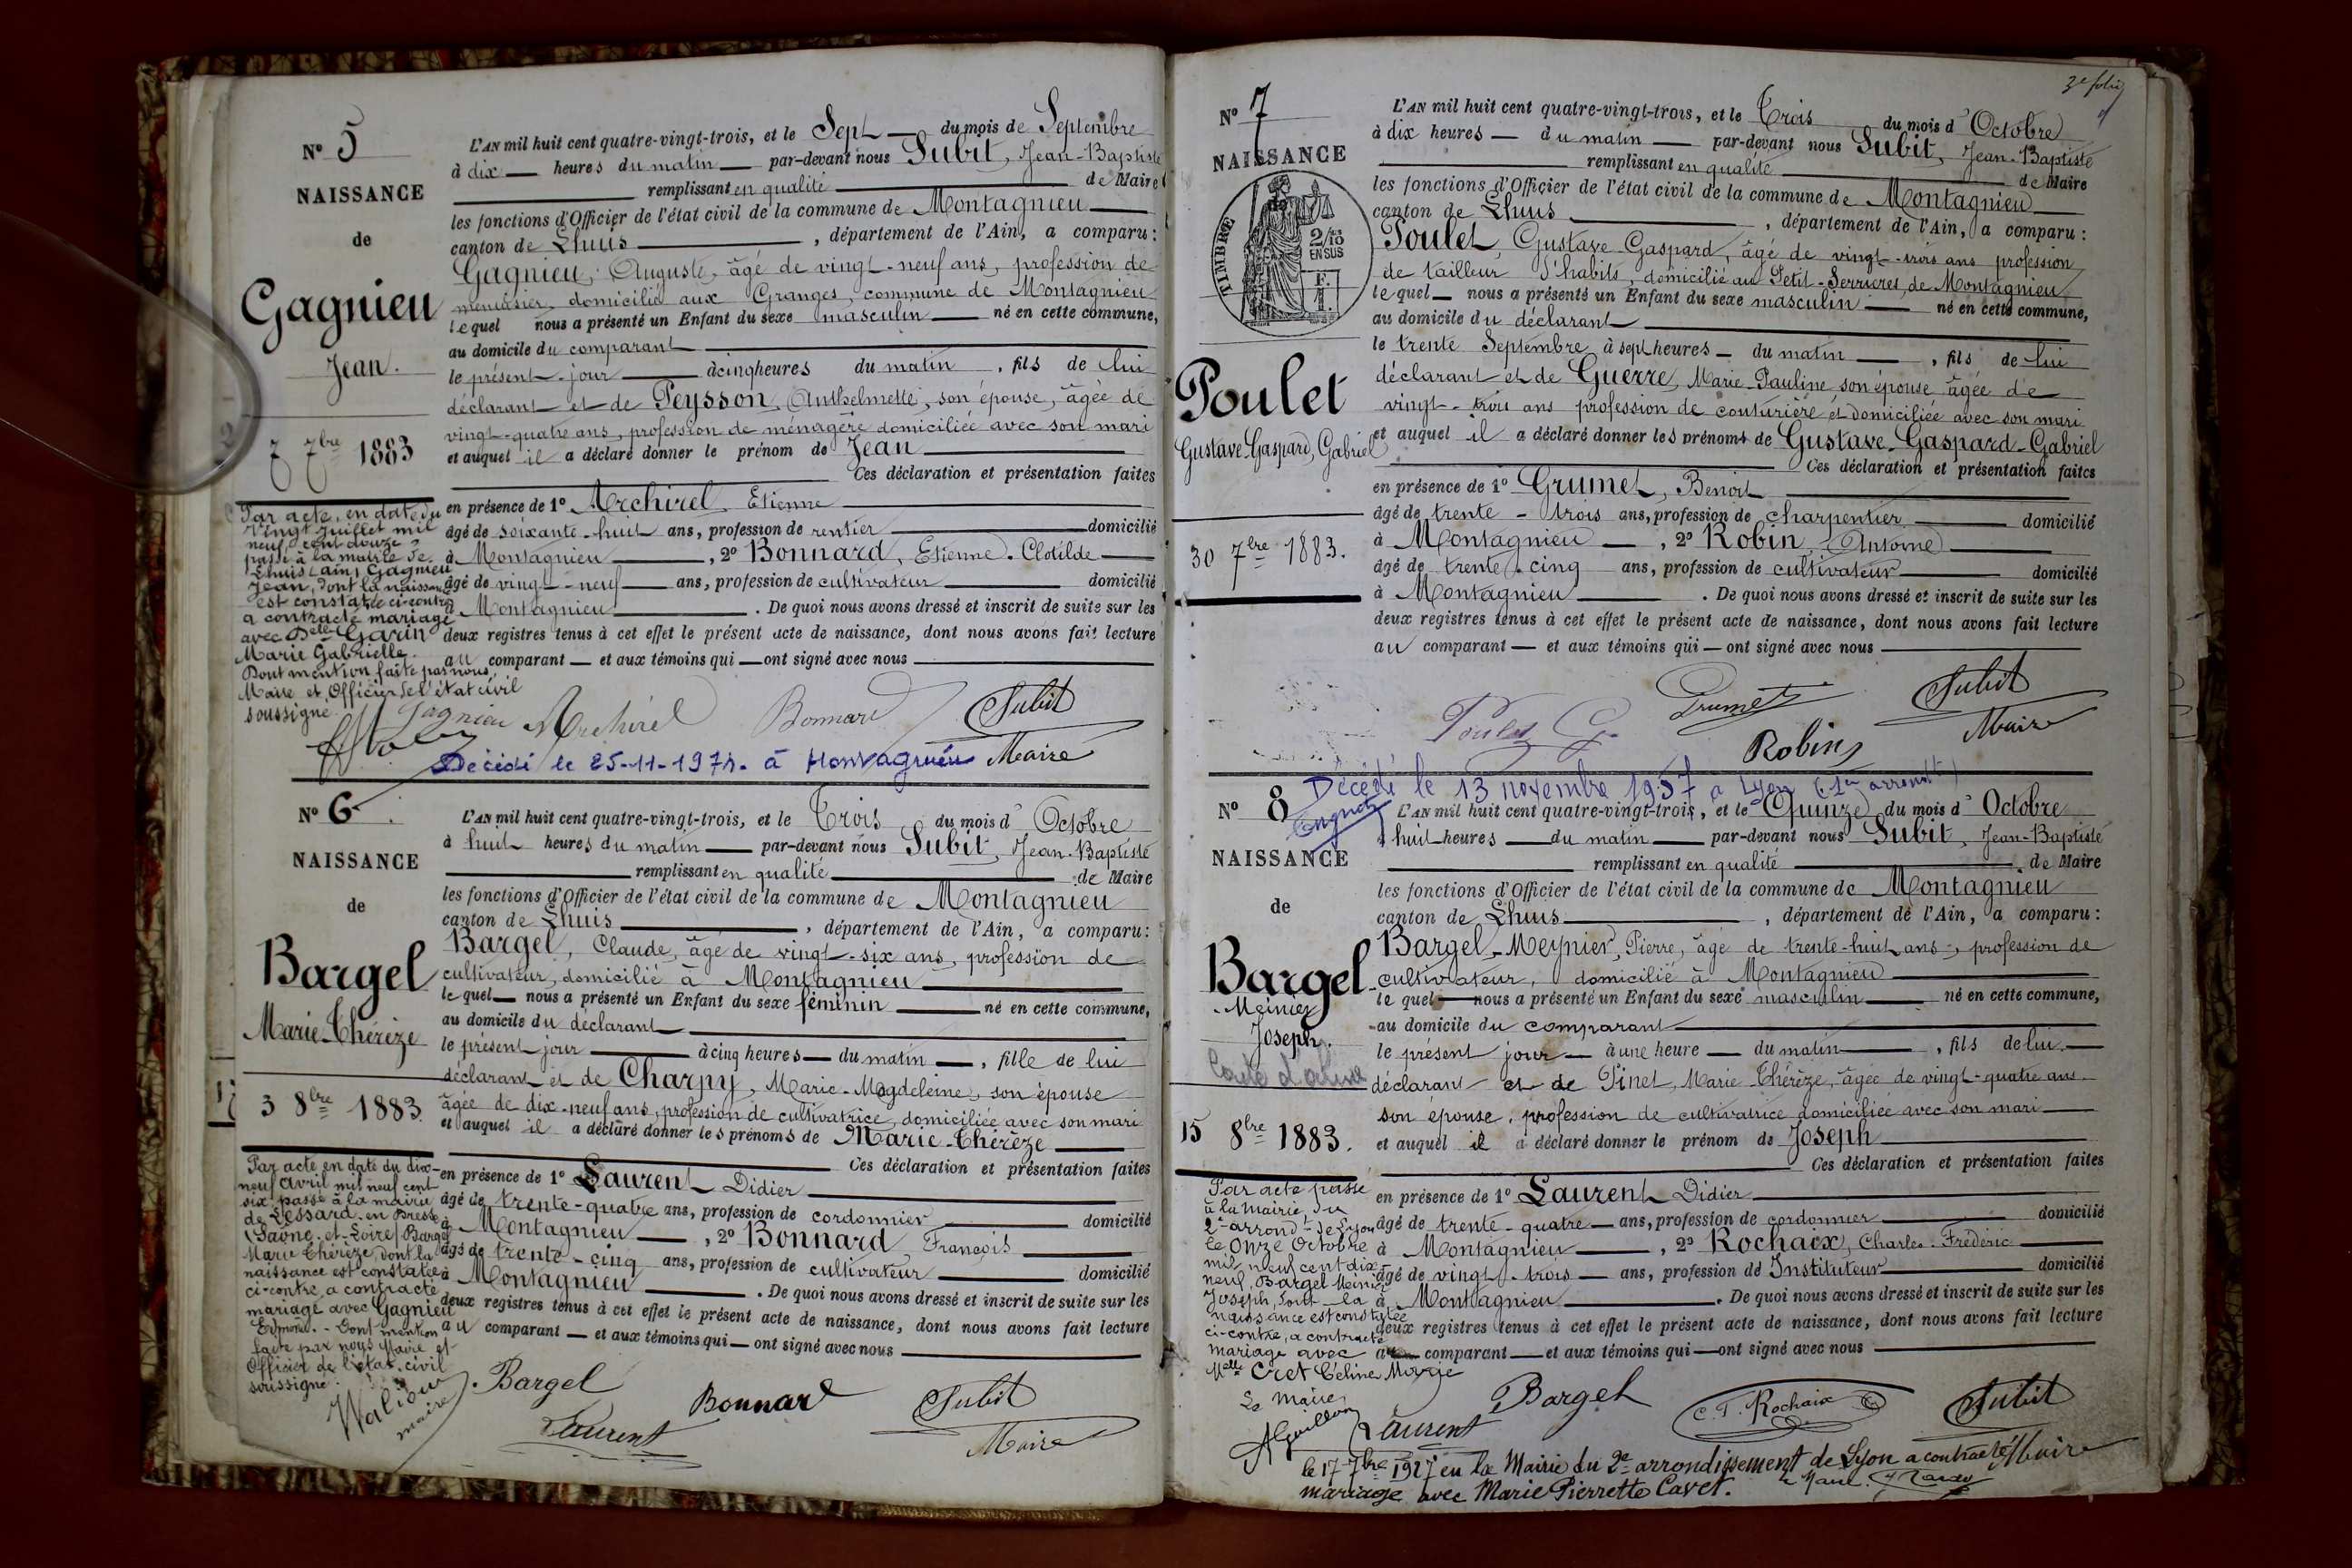 N° 5
NAISSANCE
de
Gagnieu
Jean.
7 7bre 1883
L'AN mil huit cent quatre-vingt-trois, et le Sept du mois de Septembre
à dix heures du matin par-devant nous Subit, Jean-Baptiste
remplissant en qualité de Maire
les fonctions d'Officier de l'état civil de la commune de Montagnieu
canton de Lhuis, département de l'Ain, a comparu:
Gagnieu, Auguste, âgé de vingt-neuf ans, profession de
menuisier, domicilié aux Granges, commune de Montagnieu
lequel nous a présenté un Enfant du sexe masculin né en cette commune,
au domicile du comparant
le présent jour à cinq heures du matin, fils de lui
déclarant et de Peysson, Anthelmette, son épouse, âgée de
vingt-quatre ans, profession de ménagère domiciliée avec son mari
et auquel il a déclaré donner le prénom de Jean
Ces déclaration et présentation faites
en présence de 1° Archirel, Etienne
âgé de soixante-huit ans, profession de rentier domicilié
à Montagnieu, 2° Bonnard, Etienne-Clotilde
âgé de vingt-neuf ans, profession de cultivateur domicilié
à Montagnieu. De quoi nous avons dressé et inscrit de suite sur les
deux registres tenus à cet effet le présent acte de naissance, dont nous avons fait lecture
au comparant et aux témoins qui ont signé avec nous
Par acte en date du
Vingt Juillet mil
neuf cent douze
passé à la mairie de
Lhuis (Ain) Gagnieu
Jean, dont la naissance
est constatée ci-contre
a contracté mariage
avec Delle Garin
Marie Gabrielle.
Dont mention faite par nous,
Maire et Officier de l'état civil
soussigné.
Gagnieu Archirel Bonnard Subit
Maire
Décédé le 25-11-1974. à Montagnieu
N° 6.
NAISSANCE
de
Bargel
Marie-Thérèze
3 8bre 1883.
L'AN mil huit cent quatre-vingt-trois, et le Trois du mois d'Octobre
à huit heures du matin par-devant nous Subit, Jean-Baptiste
remplissant en qualité de Maire
les fonctions d'Officier de l'état civil de la commune de Montagnieu
canton de Lhuis, département de l'Ain, a comparu:
Bargel, Claude, âgé de vingt-six ans, profession de
cultivateur, domicilié à Montagnieu
lequel nous a présenté un Enfant du sexe féminin né en cette commune,
au domicile du déclarant
le présent jour à cinq heures du matin, fille de lui
déclarant et de Charpy, Marie-Magdeleine, son épouse
âgée de dix-neuf ans, profession de cultivatrice, domiciliée avec son mari
et auquel il a déclaré donner les prénoms de Marie-Thérèze
Ces déclaration et présentation faites
en présence de 1° Laurent Didier
âgé de trente-quatre ans, profession de cordonnier domicilié
à Montagnieu, 2° Bonnard, François
âgé de trente-cinq ans, profession de cultivateur domicilié
à Montagnieu. De quoi nous avons dressé et inscrit de suite sur les
deux registres tenus à cet effet le présent acte de naissance, dont nous avons fait lecture
au comparant et aux témoins qui ont signé avec nous
Par acte en date du dix-
neuf Avril mil neuf cent
six passé à la mairie
de Lessard-en-Bresse
(Saône-et-Loire) Bargel
Marie Thérèze, dont la
naissance est constatée
ci-contre, a contracté
mariage avec Gagnieu
Edmond. - Dont mention
faite par nous Maire et
Officier de l'état-civil
soussigné.
maire
Bargel Bonnard Subit
Laurent Maire
3e folio
N° 7
NAISSANCE
de
TIMBRE
2/10
EN SUS
F.
Poulet
Gustave-Gaspard, Gabriel
30 7bre 1883.
L'AN mil huit cent quatre-vingt-trois, et le Trois du mois d'Octobre
à dix heures du matin par-devant nous Subit, Jean-Baptiste
remplissant en qualité de Maire
les fonctions d'Officier de l'état civil de la commune de Montagnieu
canton de Lhuis, département de l'Ain, a comparu:
Poulet, Gustave-Gaspard, âgé de vingt-trois ans profession
de tailleur d'habits, domicilié au Petit-Serrières, de Montagnieu
lequel nous a présenté un Enfant du sexe masculin né en cette commune,
au domicile du déclarant
le trente Septembre à sept heures du matin, fils de lui
déclarant et de Guerre, Marie-Pauline son épouse âgée de
vingt-trois ans profession de couturière et domiciliée avec son mari
et auquel il a déclaré donner les prénoms de Gustave-Gaspard-Gabriel
Ces déclaration et présentation faites
en présence de 1° Grumet, Benoit
âgé de trente-trois ans, profession de charpentier domicilié
à Montagnieu, 2° Robin, Antoine
âgé de trente-cinq ans, profession de cultivateur domicilié
à Montagnieu. De quoi nous avons dressé et inscrit de suite sur les
deux registres tenus à cet effet le présent acte de naissance, dont nous avons fait lecture
au comparant et aux témoins qui ont signé avec nous
Poulet G. Grumet Subit
Robin Maire
Décédé le 13 novembre 1957 à Lyon (1er arrondt)
N° 8
NAISSANCE
de
Bargel
Meinier
Joseph.
15 8bre 1883.
L'AN mil huit cent quatre-vingt-trois, et le Quinze du mois d'Octobre
à huit heures du matin par-devant nous Subit, Jean-Baptiste
remplissant en qualité de Maire
les fonctions d'Officier de l'état civil de la commune de Montagnieu
canton de Lhuis, département de l'Ain, a comparu:
Bargel-Meynier, Pierre, âgé de trente-huit ans, profession de
cultivateur, domicilié à Montagnieu
lequel nous a présenté un Enfant du sexe masculin né en cette commune,
au domicile du comparant
le présent jour à une heure du matin, fils de lui
déclarant et de Pinet, Marie-Thérèze, âgée de vingt-quatre ans
son épouse, profession de cultivatrice domiciliée avec son mari
et auquel il a déclaré donner le prénom de Joseph
Ces déclaration et présentation faites
en présence de 1° Laurent Didier
âgé de trente-quatre ans, profession de cordonnier domicilié
à Montagnieu, 2° Rochaix, Charles-Frédéric
âgé de vingt-trois ans, profession de Instituteur domicilié
à Montagnieu. De quoi nous avons dressé et inscrit de suite sur les
deux registres tenus à cet effet le présent acte de naissance, dont nous avons fait lecture
au comparant et aux témoins qui ont signé avec nous
Par acte passé
à la Mairie du
2e arrondt de Lyon
le onze Octobre
mil neuf cent dix-
neuf, Bargel Meinier
Joseph, dont la
naissance est constatée
ci-contre, a contracté
mariage avec
Melle Cret Céline Marie
Le Maire
Laurent Bargel C. F. Rochaix Subit
Maire
le 17 7bre 1927 en la Mairie du 2e arrondissement de Lyon a contracté
mariage avec Marie Pierrette Cavet. Le Maire